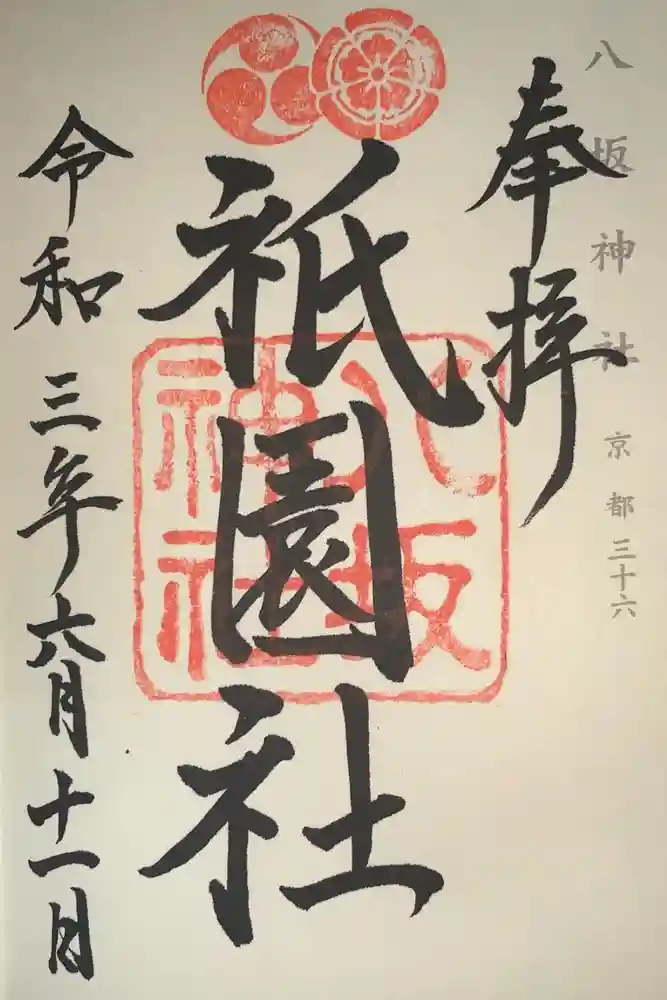 八坂神社 京都三十六
奉拝
祇園社
八坂
神社
令和三年六月十一日